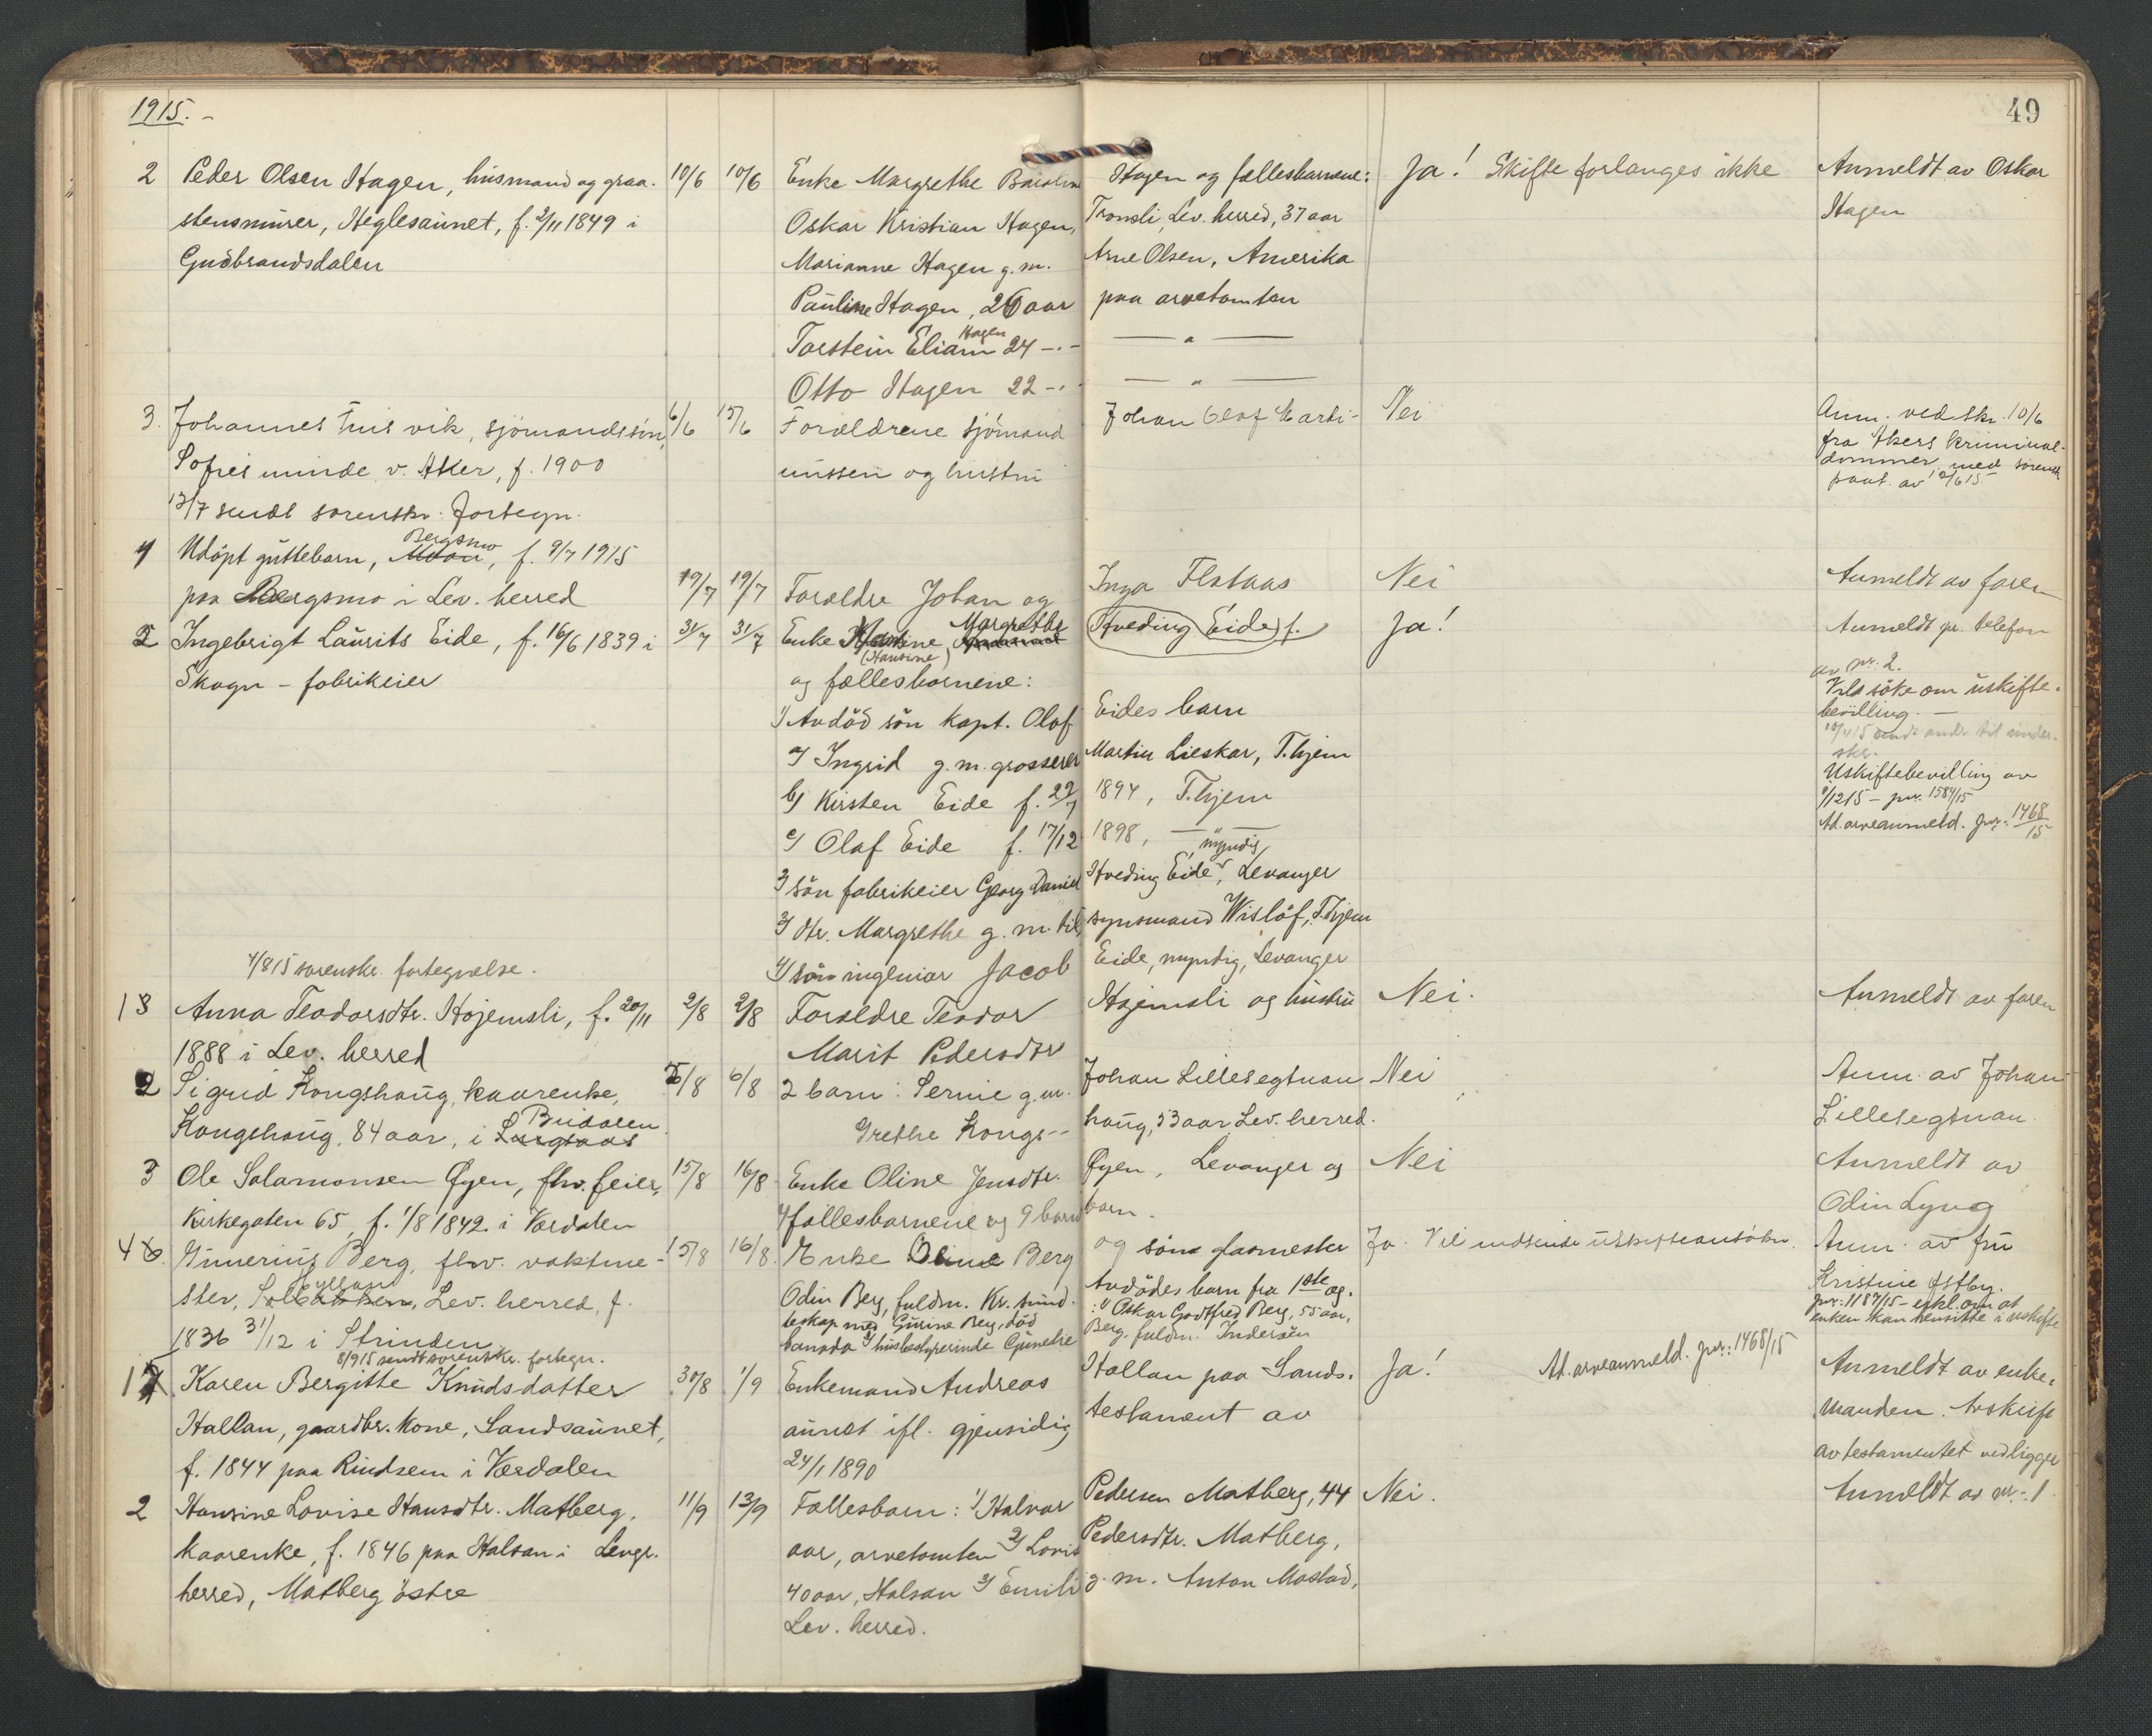 1915. -
49
2 Peder Olsen Hagen, husmand og graa- 10/6 10/6 Enke Margrethe Hagen og fællesbarnene: Ja! Skifte forlanges ikke Anmeldt av Oskar
stensmurer, Heglesaunet, f. 2/11 1849 i Oskar Kristian Hagen, Tronsli, Lev. herred, 37 aar Hagen
Gudbrandsdalen Marianne Hagen g.m. Arne Olsen, Amerika
Pauline Hagen, 26 aar paa arvetomten
Torstein Eliam Hagen 24 -"- — " —
Otto Hagen 22 -"- — " —
3. Johannes vik, sjömandssön, 6/6 15/6 Forældrene sjömand Johan Olaf Marti- Nei Anm. ved skr. 10/6
Sofies minde v. Aker, f. 1900 nussen og hustru fra Akers kriminal-
dommer med sorensk
paat. av 12/6 15
13/7 sendt sorenskr. fortegn.
4 Udöpt guttebarn, Moan Bergsmo, f. 9/7 1915
paa Bergsmo i Lev. herred 19/7 19/7 Forældre Johan og Inga Flataas Nei Anmeldt av faren
2 Ingebrigt Laurits Eide, f. 16/6 1839 i 31/7 31/7 Enke (Hansine) Margrethe Hveding Eide f. Ja! Anmeldt pr. telefon
Skogn - fabrikeier og fællesbarnene: av nr. 2.
1) Avdöd sön kapt. Olaf Eides barn Vil söke om uskifte-
bevilling. —
a) Ingrid g.m. grosserer Martin Lieskar, T.hjem
b) Kirsten Eide f. 22/7 1894, T.hjem Uskiftebevilling av
9/12 15 - jnr. 1584/15
c) Olaf Eide f. 17/12 1898, — " — Ad. arveanmeld. jnr. 1468/15
2) sön fabrikeier Georg Daniel Hveding Eide, myndig, Levanger
3) dtr. Margrethe g.m. til- synsmand Wislöf, T.hjem
4/8 15 sorenskr. fortegnelse. 4) sön ingeniör Jacob Eide, myndig, Levanger
1 Anna Teodorsdtr. Höjemsli, f. 20/11 2/8 2/8 Forældre Teodor Höjemsli og hustru Nei. Anmeldt av faren
1888 i Lev. herred Marit Pedersdtr
2 Sigrid Kongshaug, kaarenke, 5/8 6/8 2 barn: Sernie g.m. Johan Lillesegtnan Nei Anm. av Johan
Kongshaug, 84 aar, i Buidalen Grethe Kongs- haug, 53 aar, Lev. herred. Lillesegtnan.
3 Ole Salamonsen Öyen, fhv. feier, 15/8 16/8 Enke Oline Jensdtr. Öyen, Levanger og Nei Anmeldt av
Kirkegaten 65, f. 1/8 1842 i Værdalen 4 fællesbarnene og 9 barn barn. Odin Lyng
4 Gunerius Berg, fhv. vaktme- 15/8 16/8 Enke Oline Berg og sön glasmester Ja. Vil indsende uskifteansökn. Anm. av fru
ster, Lev. herred, f. Odin Berg, fuldm. Kr.sund. Avdödes barn fra 1ste æg- Kristine Östby.
1836 31/12 i Strinden teskap med Gurine Berg, död : 1) Oskar Godtfred Berg, 55 aar, jnr. 1187/15 - erkl. om at
8/9 15 sendt sorenskr. fortegn. Canada 2) husbestyrerinde Gunelie Berg, fuldm. Inderöen enken kan hensitte i uskifte
1 Karen Bergitte Knudsdatter 30/8 1/9 Enkemand Andreas Hallan paa Sands- Ja! Ad. arveanmeld. jnr. 1468/15 Anmeldt av enke-
Hallan, gaardbr. kone, Sandsaunet, aunet ifl. gjensidig testament av manden. Avskrift
f. 1844 paa Rindsem i Værdalen 24/1 1890 av testamentet vedligger
2 Hansine Lovise Hansdtr. Matberg, 11/9 13/9 Fællesbarn: 1) Halvor Pedersen Matberg, 44 Nei. Anmeldt av nr. 1.
kaarenke, f. 1846 paa Halsan i Levgr. aar, arvetomten 2) Lovise Pedersdtr. Matberg,
herred, Matberg östre 40 aar, Halsan 3) Emilie g.m. Anton Mostad,
Lev. herred.